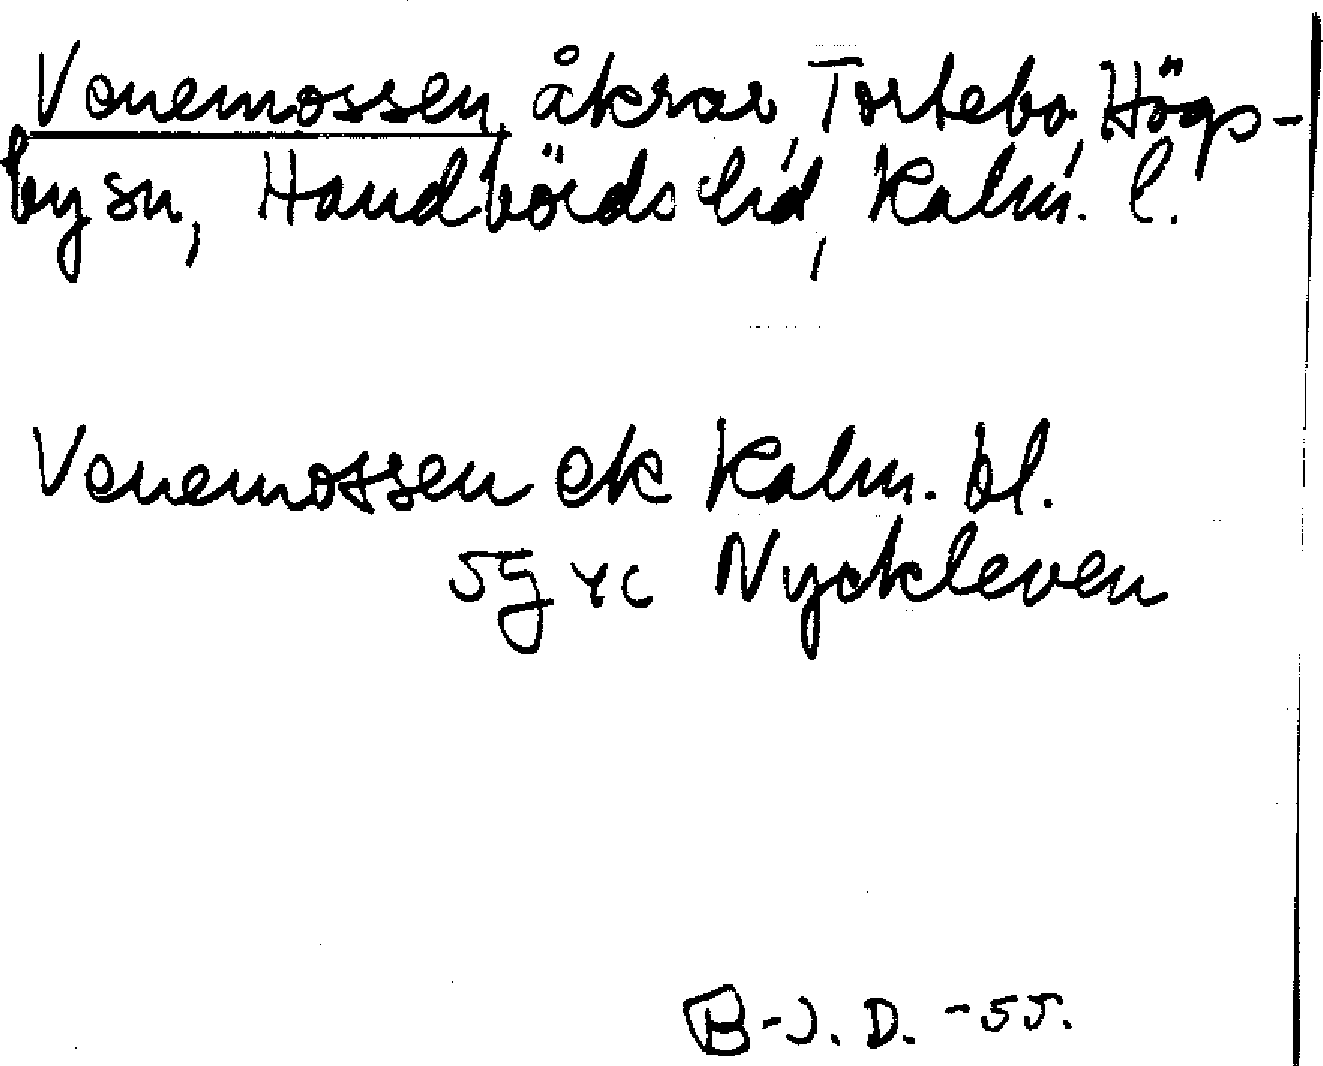 Venemossen, åkrar, Tortebo, Högs-
by sn, Handbörds hd, Kalm. l.
Venemossen ek Kalm. bl.
5g xc Nyckleven
B-J. D. -55.